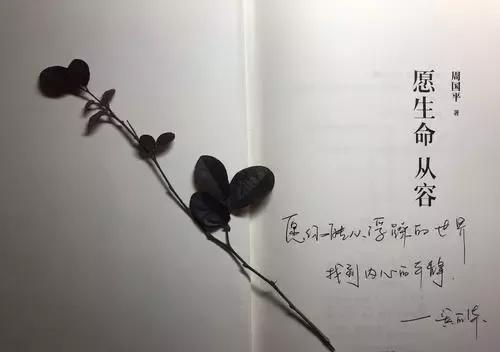 周国平 著
愿生命从容
愿你 浮躁的世界
找到内心的平静.